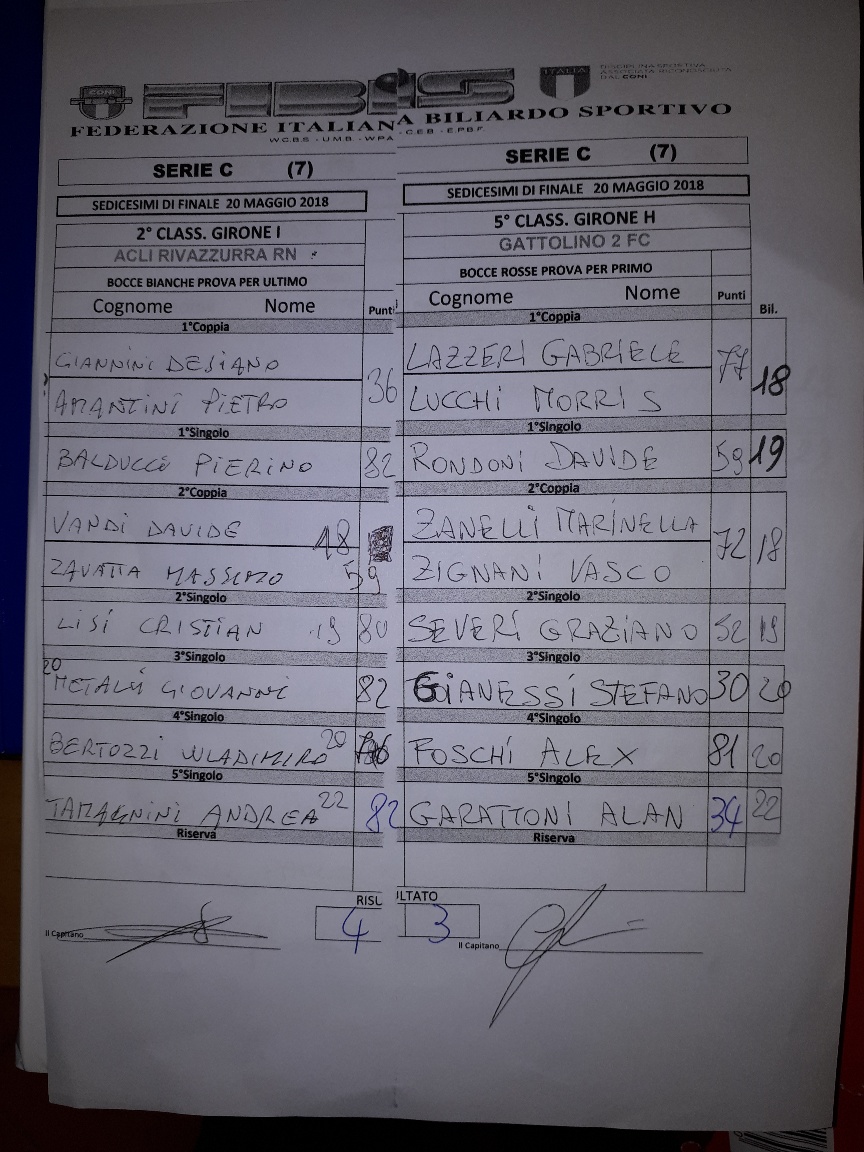 CONI FIBiS ITALIA DISCIPLINA SPORTIVA
ASSOCIATA RICONOSCIUTA
DAL CONI
FEDERAZIONE ITALIANA BILIARDO SPORTIVO
W.C.B.S. - U.M.B. - WPA - C.E.B. - E.P.B.F
SERIE C (7) SERIE C (7)
SEDICESIMI DI FINALE 20 MAGGIO 2018 SEDICESIMI DI FINALE 20 MAGGIO 2018
2° CLASS. GIRONE I 5° CLASS. GIRONE H
ACLI RIVAZZURRA RN GATTOLINO 2 FC
BOCCE BIANCHE PROVA PER ULTIMO BOCCE ROSSE PROVA PER PRIMO
Cognome Nome Punti Cognome Nome Punti Bil.
1°Coppia 1°Coppia
GIANNINI DESIANO 36 LAZZERI GABRIELE 77 18
AMANTINI PIETRO LUCCHI MORRIS
1°Singolo 1°Singolo
BALDUCCI PIERINO 82 RONDONI DAVIDE 59 19
2°Coppia 2°Coppia
VANDI DAVIDE 18 ZANELLI MARINELLA 72 18
ZAVATTA MASSIMO 59 ZIGNANI VASCO
2°Singolo 2°Singolo
LISI CRISTIAN 19 80 SEVERI GRAZIANO 52 19
3°Singolo 3°Singolo
20 GIOVANNI 82 GIANESSI STEFANO 30 20
4°Singolo 4°Singolo
BERTOZZI WLADIMIRO 20 FOSCHI ALEX 81 20
5°Singolo 5°Singolo
TAMAGNINI ANDREA 22 82 GARATTONI ALAN 34 22
Riserva Riserva
RISU LTATO
4 3
Il Capitano Il Capitano